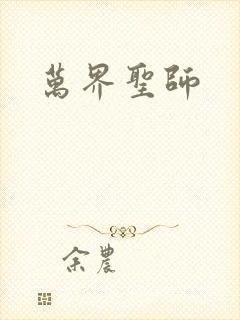 萬界聖師
余農